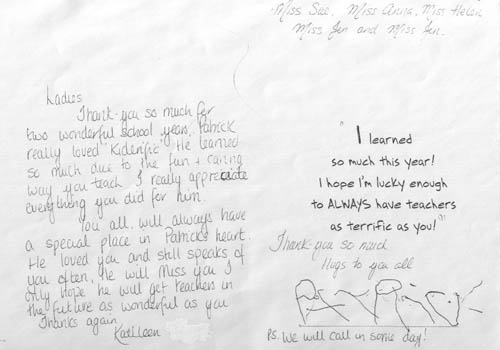 Ladies
Thank-you so much for
two wonderful school years, Patrick
really loved Kiderific. He learned
so much due to the fun + caring
way you teach. I really appreciate
everything you did for him.
You all will always have
a special place in Patricks heart.
He loved you and still speaks of
you often, he will miss you I
only hope he will get teachers in
the future as wonderful as you
Thanks again
Kathleen
Miss Sue, Miss Anna, Miss Helen
Miss Jen and Miss Jen.
"I learned
so much this year!
I hope I'm lucky enough
to ALWAYS have teachers
as terrific as you!"
Thank-you so much
Hugs to you all
PS. We will call in some day!